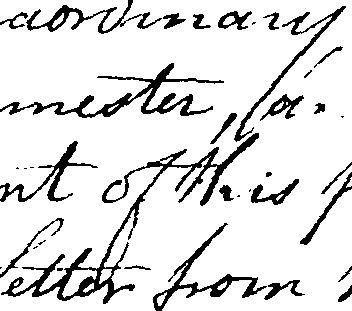 raordinary
mester, (a.
nt of this p
letter from